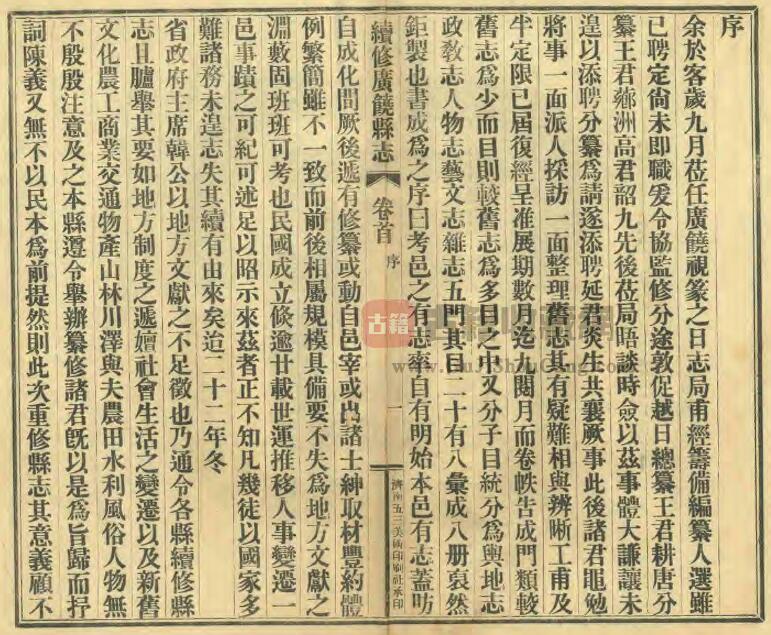 序
余於客歲九月莅任廣饒視篆之日志局甫經籌備編纂人選雖
已聘定尙未即職爰令協監修分途敦促越日總纂王君耕唐分
纂王君薌洲高君韶九先後莅局晤談時僉以茲事體大謙讓未
遑以添聘分纂爲請遂添聘延君炎生共襄厥事此後諸君黽勉
將事一面派人採訪一面整理舊志其有疑難相與辨晰工甫及
半定限已屆復經呈准展期數月迄九閱月而卷帙告成門類較
舊志爲少而目則較舊志爲多目之中又分子目統分爲輿地志
政教志人物志藝文志雜志五門其目二十有八彙成八册裒然
鉅製也書成爲之序曰考邑之有志率自有明始本邑有志蓋昉
續修廣饒縣志
卷首
序
一
濟南五三美術印刷社承印
自成化間厥後遞有修纂或動自邑宰或出諸士紳取材豐約體
例繁簡雖不一致而前後相屬規模具備要不失爲地方文獻之
淵藪固班班可考也民國成立倐逾廿載世運推移人事變遷一
邑事蹟之可紀可述足以昭示來茲者正不知凡幾徒以國家多
難諸務未遑志失其續有由來矣迨二十二年冬
省政府主席韓公以地方文獻之不足徵也乃通令各縣續修縣
志且臚舉其要如地方制度之遞嬗社會生活之變遷以及新舊
文化農工商業交通物產山林川澤與夫農田水利風俗人物無
不殷殷注意及之本縣遵令舉辦纂修諸君旣以是爲旨歸而抒
詞陳義又無不以民本爲前提然則此次重修縣志其意義顧不
古籍